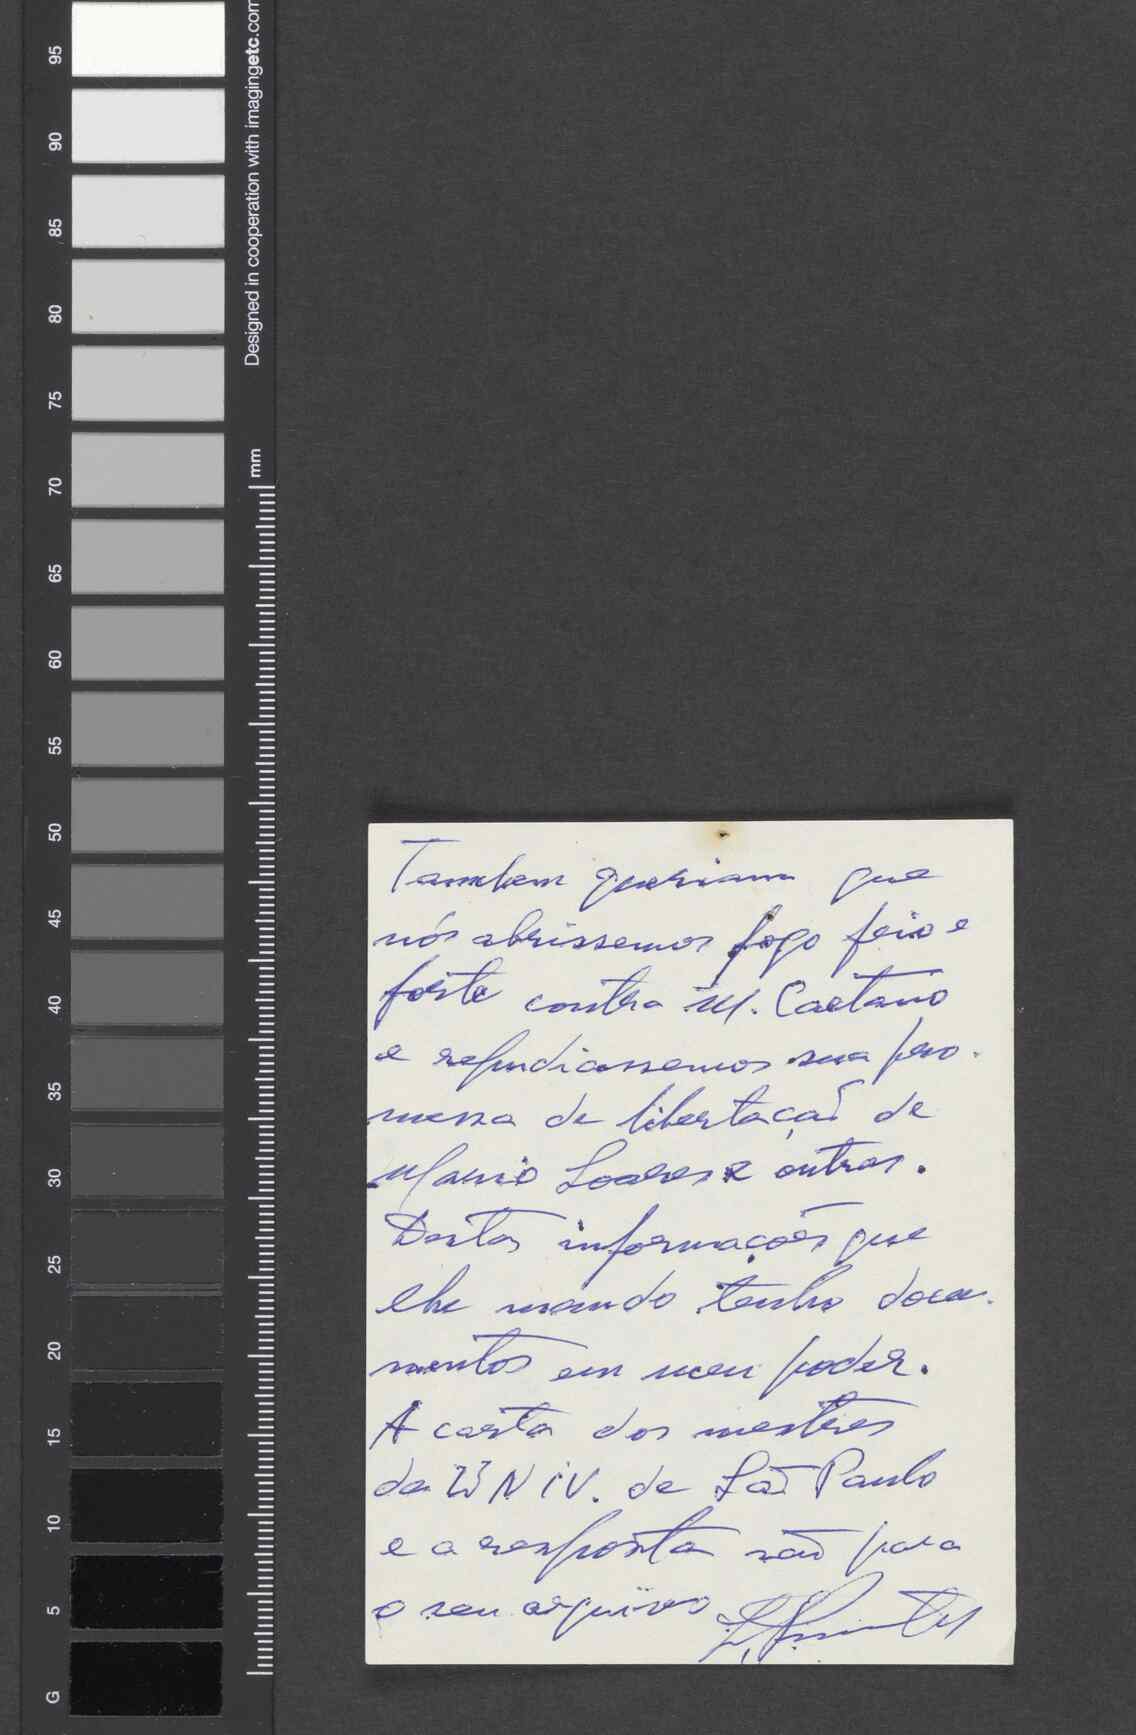 95
90
85
80
75
70
65
60
55
50
45
40
35
30
25
20
15
10
5
G
Designed in cooperation with imagingetc.com
mm
Tambem queriam que
nós abrissemos fogo feio e
forte contra M. Caetano
e repudiassemos sua pro-
messa de libertação de
Mario Soares e outros.
Destas informações que
lhe mando tenho docu-
mentos em meu poder.
A carta dos mestres
da UNIV. de São Paulo
e a resposta são para
o seu arquivo